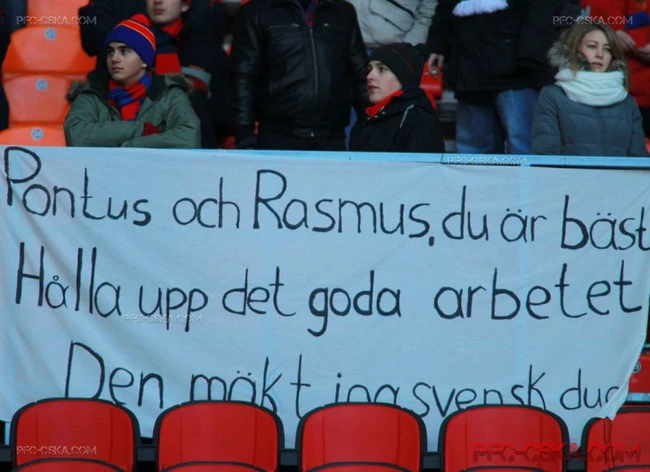 Pontus och Rasmus, du är bäst
Hålla upp det goda arbetet
Den mäkt svensk
PFC-CSKA.COM
PFC-CSKA.COM
PFC-CSKA.COM
PFC-CSKA.COM
PFC-CSKA.COM
PFC-CSKA.COM
PFC-CSKA.COM
PFC-CSKA.COM